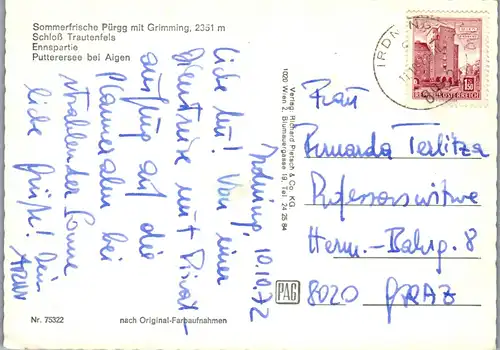 Sommerfrische Pürgg mit Grimming, 2351 m
Schloß Trautenfels
Ennspartie
Putterersee bei Aigen
Irdning, 10.10.72
Liebe Von einer
Dienstreise mit Privat-
ausflug auf die
Planneralm bei
strahlender Sonne
liebe Grüße! Dein
Verlag: Richard Pietsch & Co. KG.
1020 Wien 2, Blumauergasse 19, Tel. 24 25 84
PAG
IRDNING
1.50
REPUBLIK ÖSTERREICH
Frau
Terlitza
Professorswitwe
Herm.-Bahrg. 8
8020 GRAZ
Nr. 75322
nach Original-Farbaufnahmen